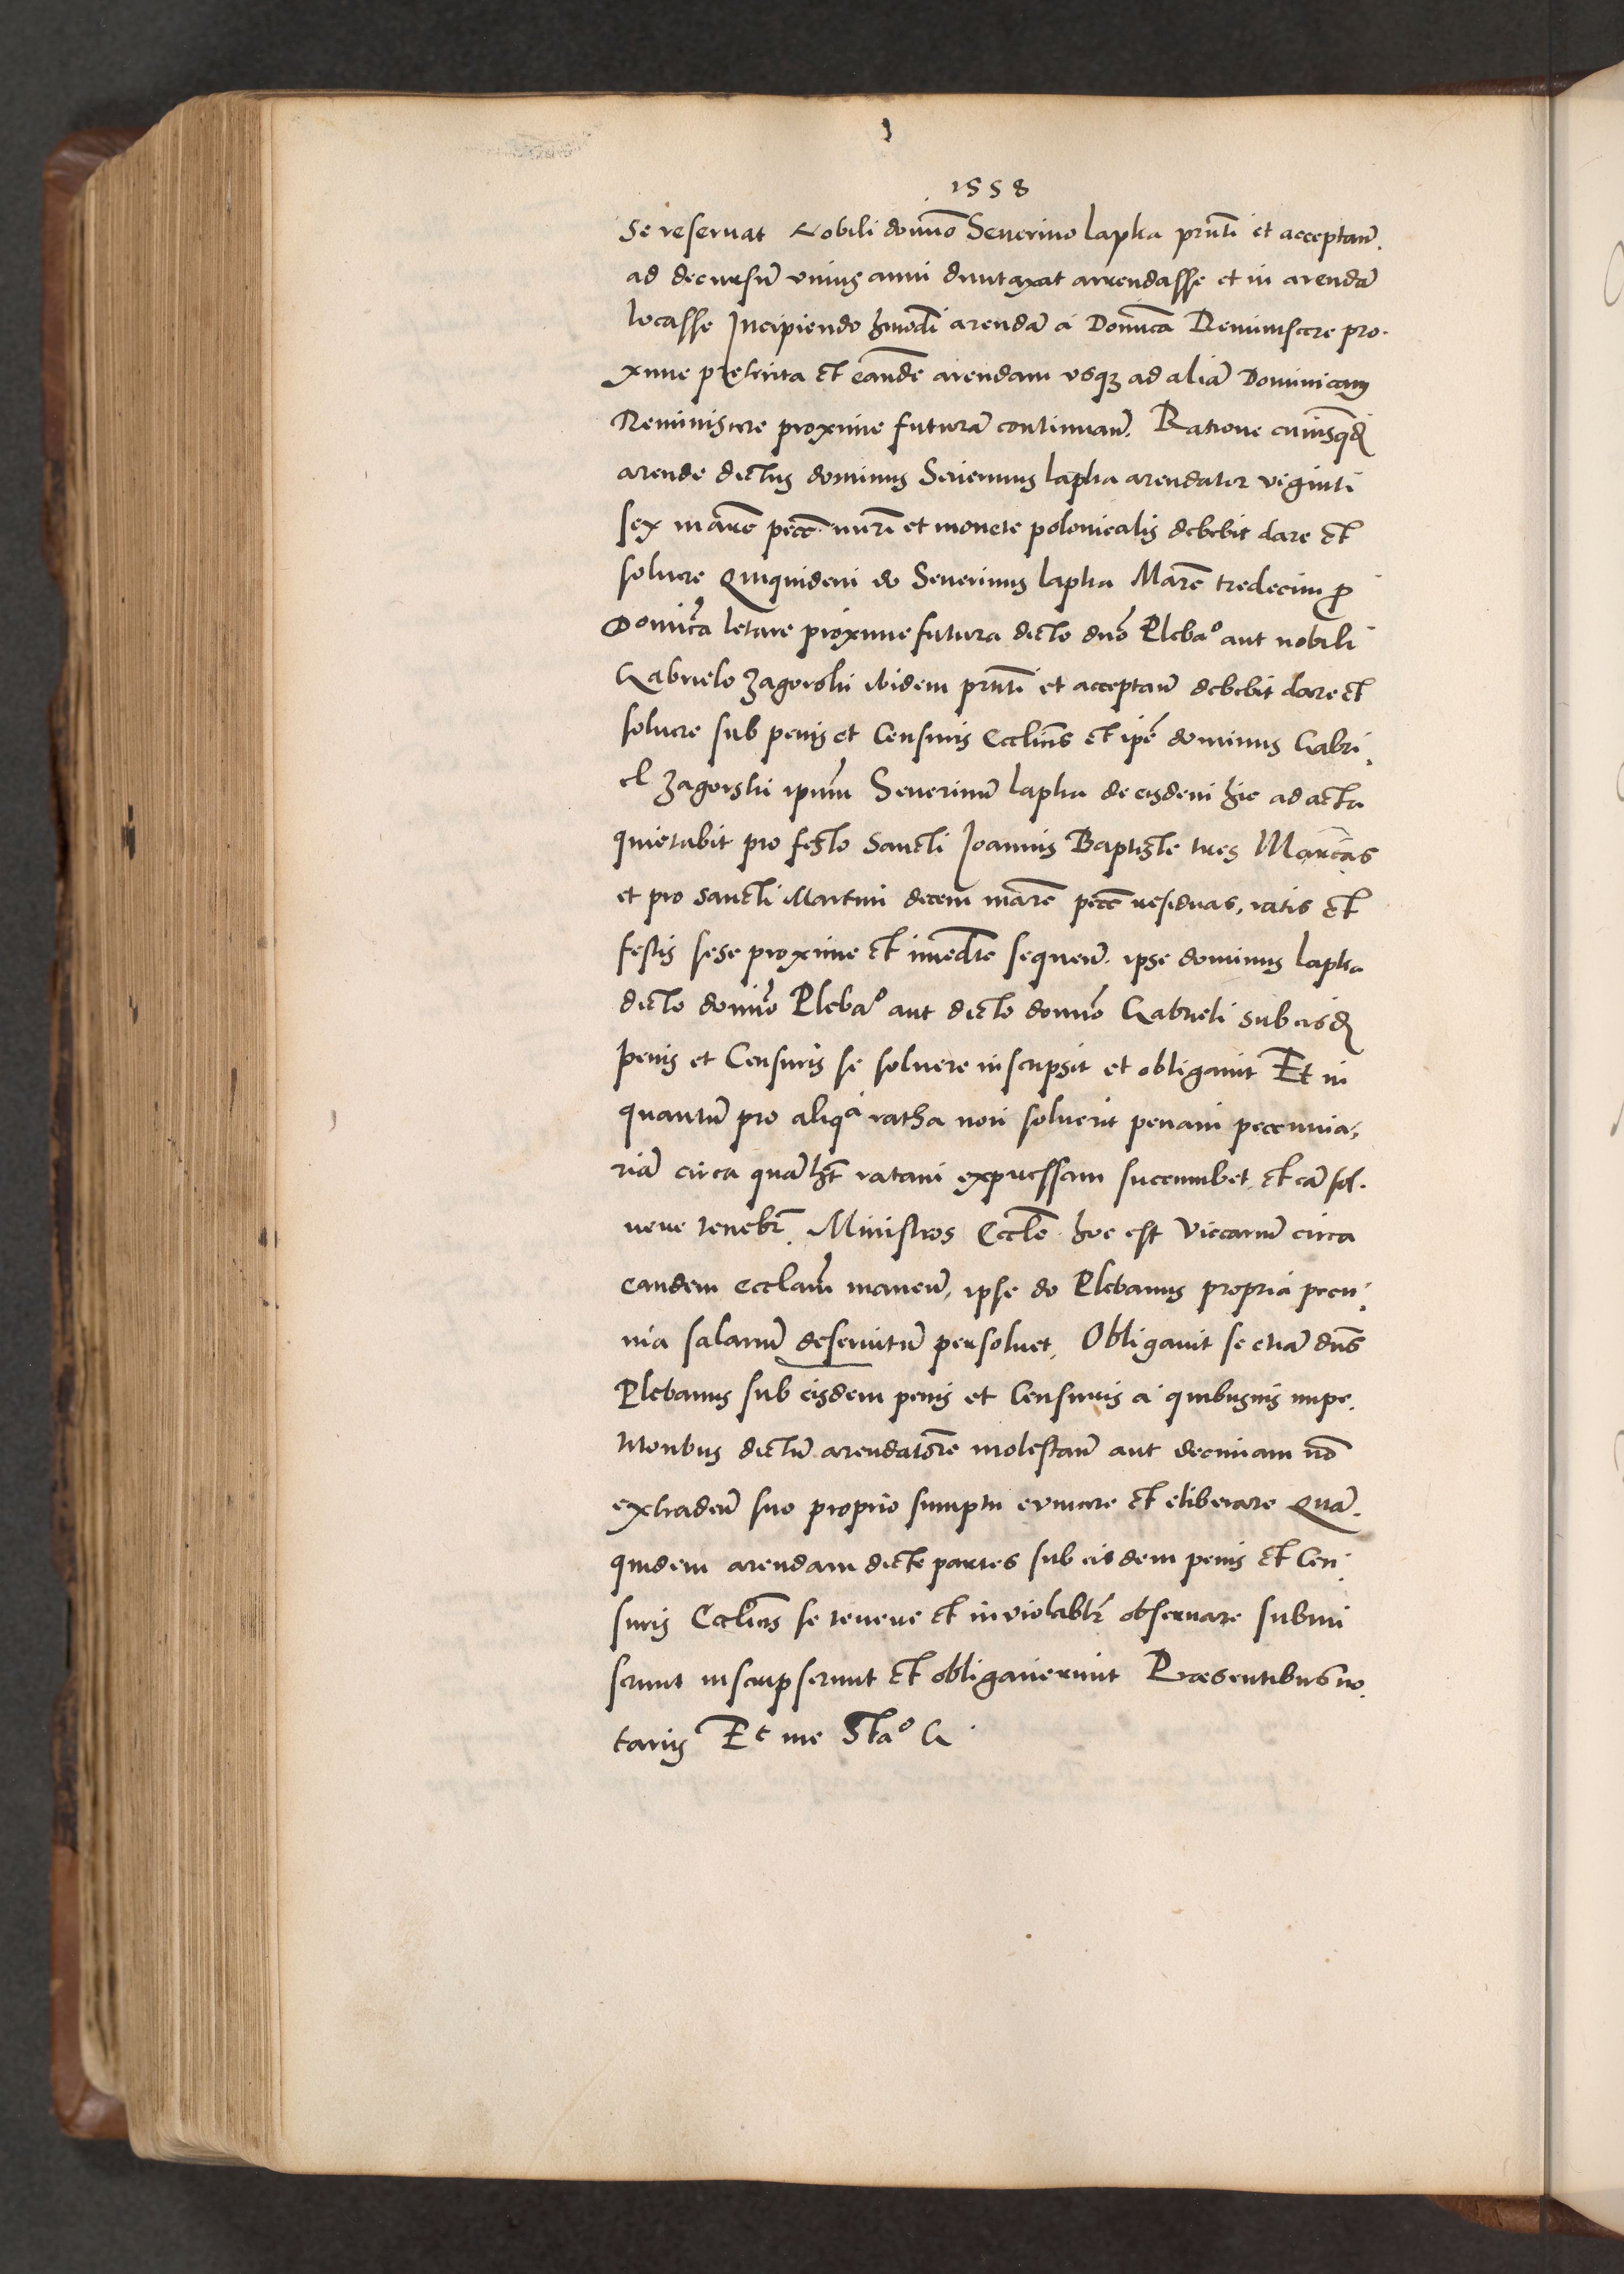 1558
Se reseruat Nobili domīo Seuerino Lapka prn̄ti et acceptan̄.
ad decursū vnius anni duntaxat arrendasse et in arendā
locasse Incipiendo hm̄odi arendā a Domīca Reminiscere pro-
xime preterita et eandē arendam vsqȝ ad aliā Dominicam
Reminiscere proxime futurā continuan̄. Ratione cuiusqd̄
arende dictus dominus Seuerinus Lapka arendator viginti
sex marc̄ pecc̄ nūri et monete polonicalis debebit dare et
soluere Quiquidem do Seuerinus Lapka Marc̄ tredecim ꝓ
Domīca letare proxime futura dicto dn̄o Plebaᵒ aut nobili
Gabrielo Zagorski ibidem prn̄ti et acceptan̄ debebit dare et
soluere sub penis et Censuris Eccl̄icis et ip̄e dominus Gabri-
el Zagorski ipsum Seuerinū Lapka de eisdem hic ad acta
quietabit pro festo Sancti Joannis Baptiste tres Marcas
et pro Sancti Martini decem marc̄ pecc̄ residuas, ratis et
festis sese proxime et imediate sequen̄. ipse dominus Lapka
dicto domīo Plebaᵒ aut dicto domīo Gabrieli sub eisd̄
penis et Censuris se soluere inscripsit et obligauit Et in
quantū pro aliqᵃ ratha non soluerit penam peccunia-
riā circa quālibt̄ ratam expressam succumbet et eā sol-
uere tenebr̄. Ministros Eccl̄e hoc est Viccariū circa
eandem eccl̄am manen̄, ipse do Plebanus propria pecu-
nia salariū deseruitū persoluet. Obligauit se etiā dn̄s
Plebanus sub eisdem penis et Censuris a quibusuis impe-
titionibus dictū arendatorē molestan̄ aut decimam nō
extraden̄ suo proprio sumptu euincere et eliberare Quā-
quidem arendam dicte partes sub eisdem penis et Cen-
suris Eccl̄icis se tenere et inviolabilr̄ obseruare submi
serunt inscripserunt et obligauerunt Præsentibus no-
tariis Et me Staᵒ G